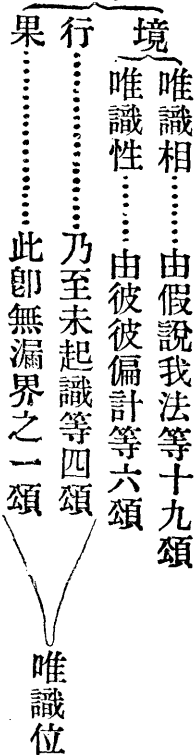 境
唯識相………由假說我法等十九頌
唯識性………由彼彼徧計等六頌
行………………乃至未起識等四頌
果………………此卽無漏界之一頌
唯識位